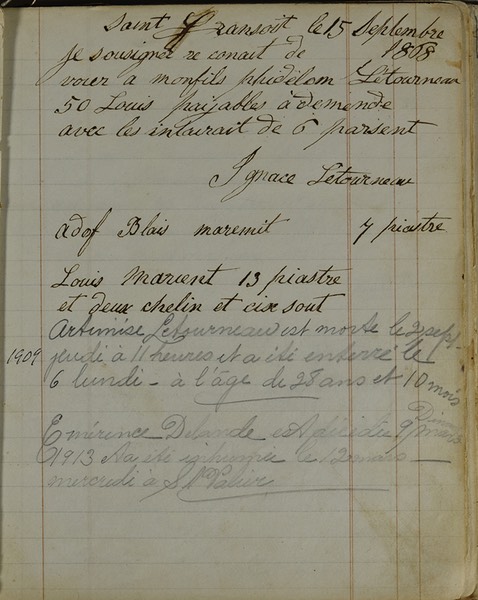 Saint Fransoit le 15 Septembre
1808
Je sousigné re conait de
voier a monfils phidélom Letourneau
50 Louis paÿables à demende
avec les intairait de 6 parisent
Ignace Letourneau
adof Blais maremit 7 piastre
Louis Marient 13 piastre
et deux chelin et cix sout
Artimise Letourneau est morte le 2 sept.
1909 jeudi à 11 heures et a été enterré le
6 lundi - à l'âge de 28 ans et 10 mois
Emérence est décidée 9 mars
1913 Aa été inhumée le 12 mars
mercredi à St Valier